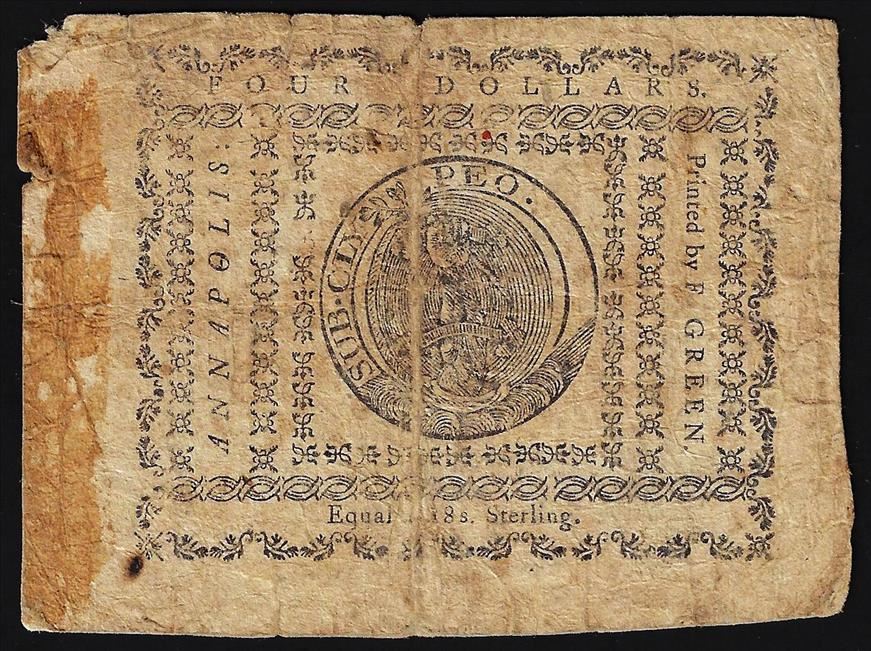 FOUR DOLLARS.
ANNAPOLIS:
SUB · CLY PEO.
Printed by F GREEN
Equal 18s. Sterling.